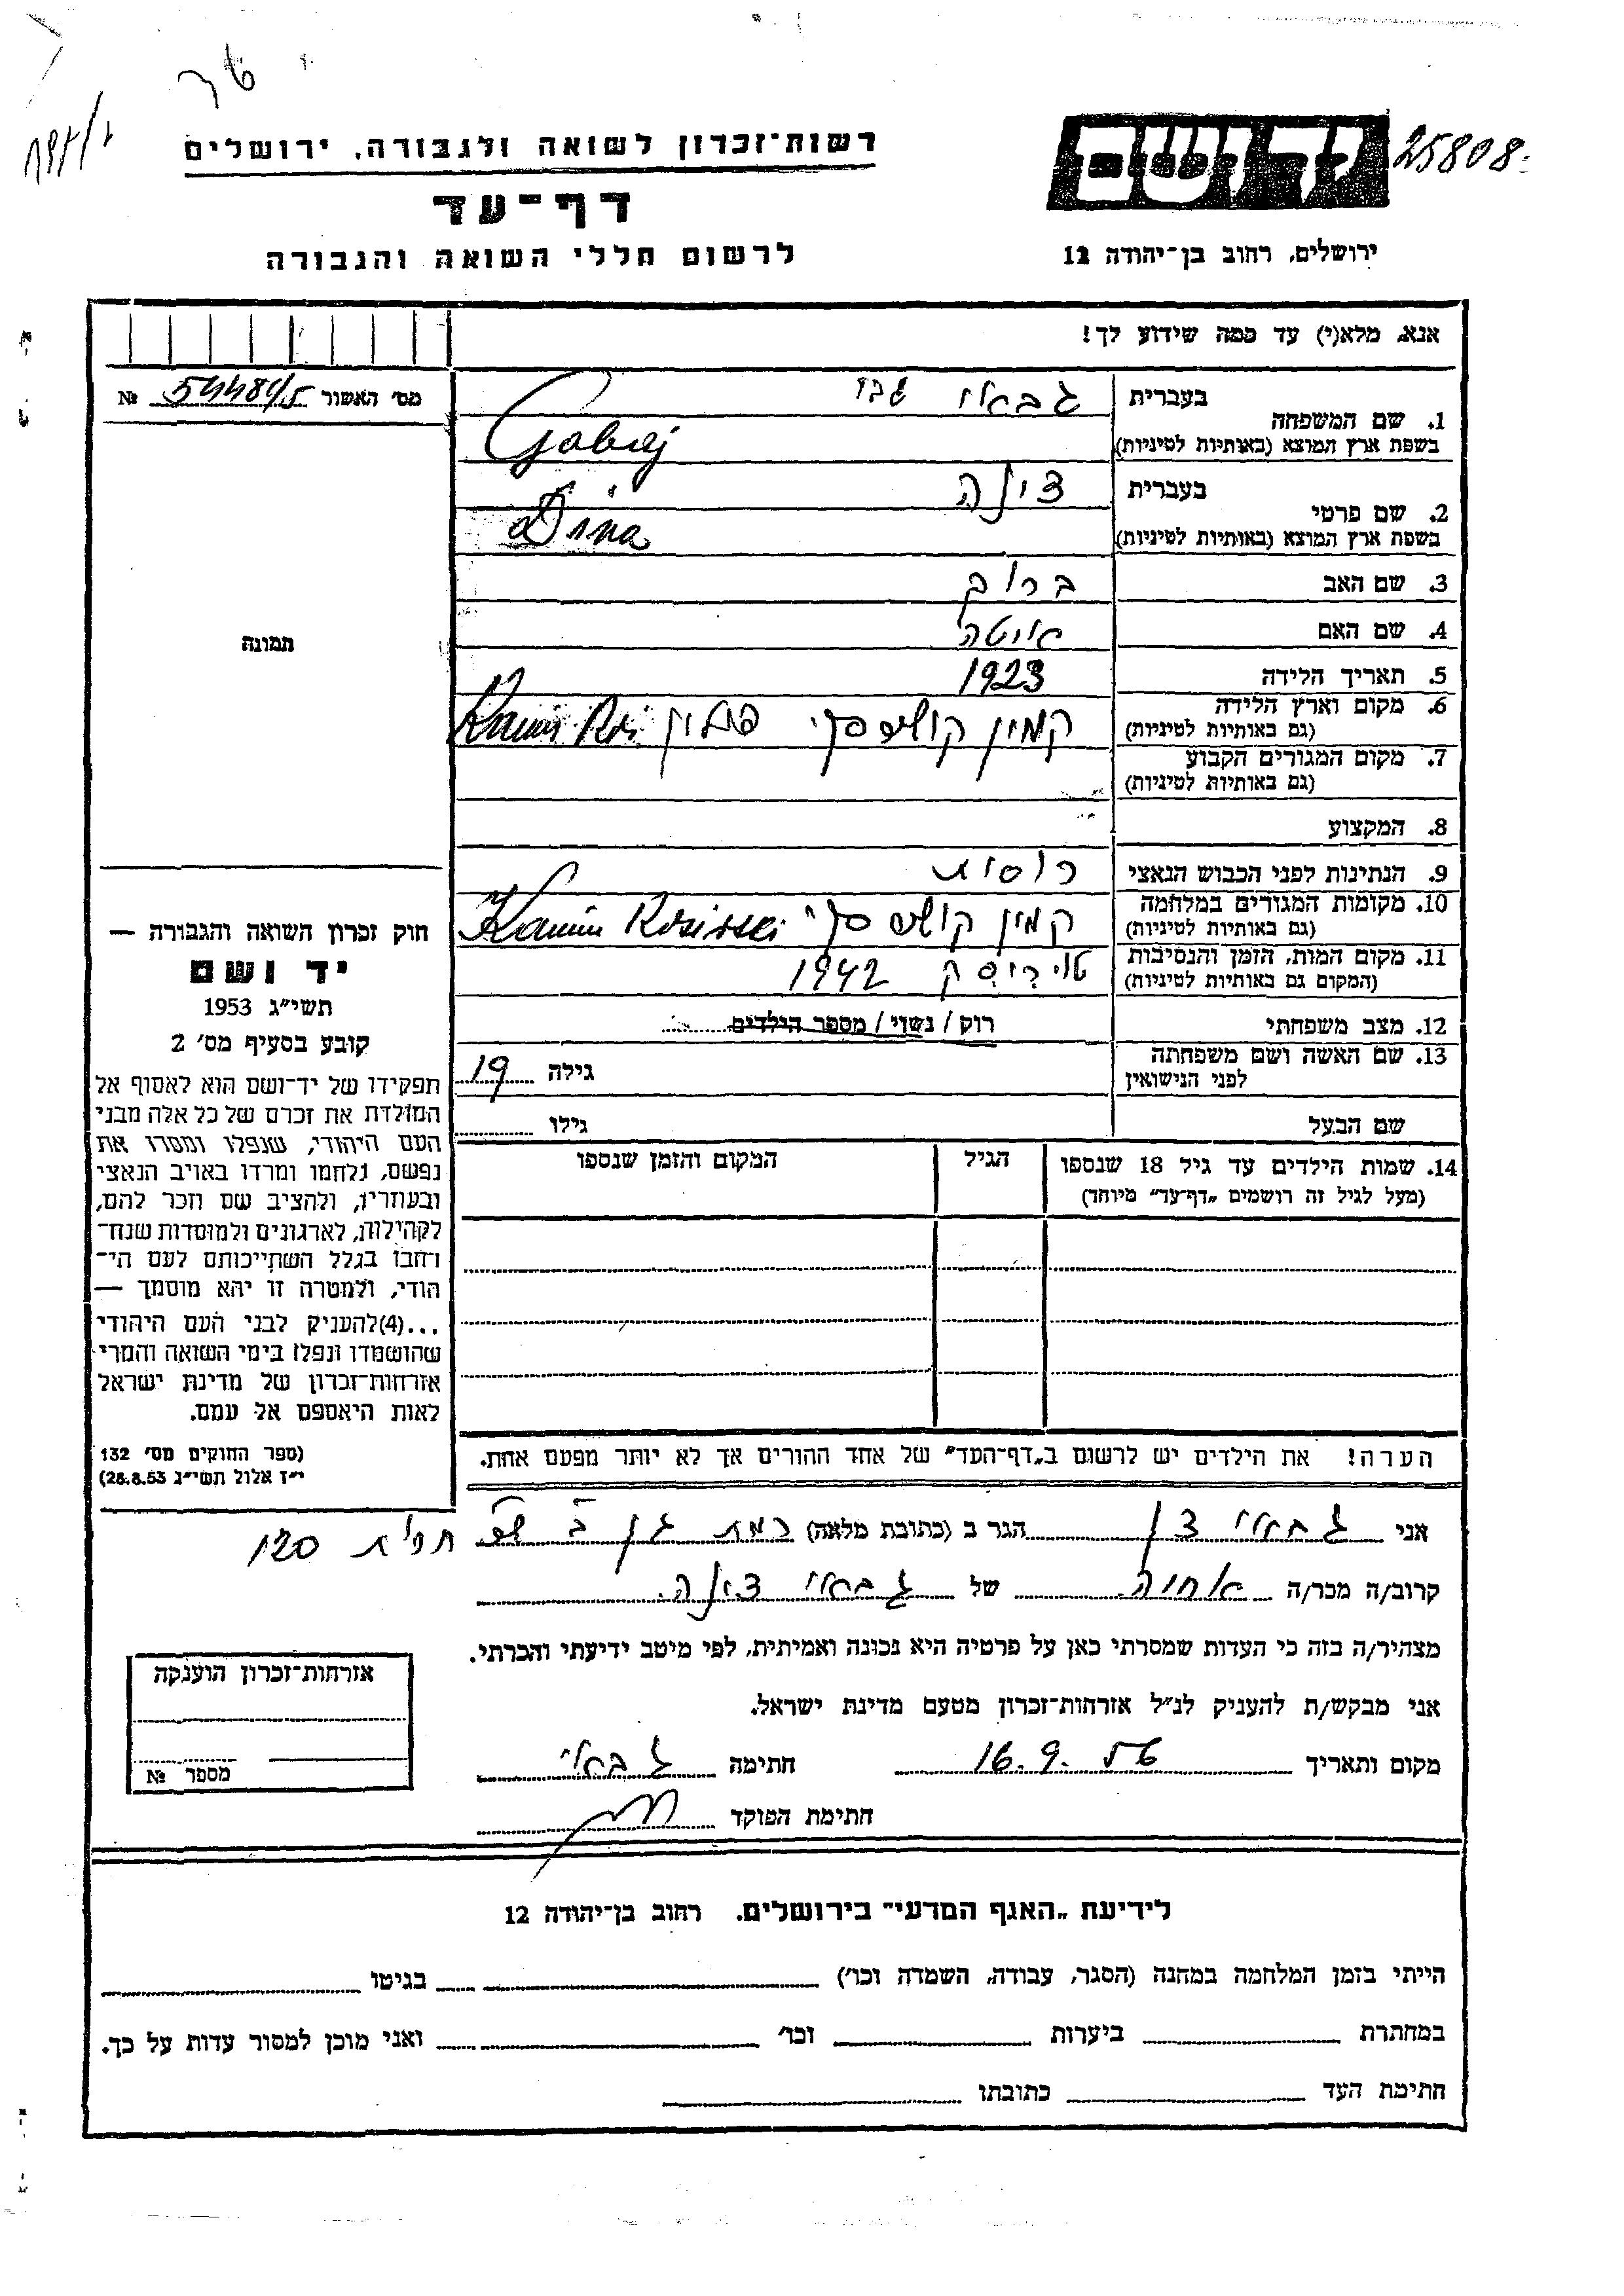 25808
רשות־זכרון לשואה ולגבורה, ירושלים
דף־עד
לרשום חללי השואה והגבורה
ירושלים, רחוב בן־יהודה 12
אנא, מלא(י) עד כמה שידוע לך!
מס' האשור №
1. שם המשפחה
בעברית גבאי
בשפת ארץ המוצא (באותיות לטיניות) Gabaj
2. שם פרטי
בעברית דינה
בשפת ארץ המוצא (באותיות לטיניות) Dina
3. שם האב ברוך
4. שם האם איטה
5. תאריך הלידה 1923
6. מקום וארץ הלידה
(גם באותיות לטיניות) קמין קושיסקי פולין Kamin
7. מקום המגורים הקבוע
(גם באותיות לטיניות)
8. המקצוע
9. הנתינות לפני הכבוש הנאצי רוסית
10. מקומות המגורים במלחמה
(גם באותיות לטיניות) קמין קושיסקי Kamin
11. מקום המות, הזמן והנסיבות
(המקום גם באותיות לטיניות) 1942
12. מצב משפחתי רוק / נשוי / מספר הילדים
13. שם האשה ושם משפחתה
לפני הנישואין גילה 19
שם הבעל גילו
14. שמות הילדים עד גיל 18 שנספו הגיל המקום והזמן שנספו
(מעל לגיל זה רושמים „דף־עד” מיוחד)
הערה! את הילדים יש לרשום ב„דף־העד” של אחד ההורים אך לא יותר מפעם אחת.
תמונה
חוק זכרון השואה והגבורה —
יד ושם
תשי״ג 1953
קובע בסעיף מס' 2
תפקידו של יד־ושם הוא לאסוף אל
המולדת את זכרם של כל אלה מבני
העם היהודי, שנפלו ומסרו את
נפשם, נלחמו ומרדו באויב הנאצי
ובעוזריו, ולהציב שם וזכר להם,
לקהילות, לארגונים ולמוסדות שנח־
רחבו בגלל השתייכותם לעם הי־
הודי, ולמטרה זו יהא מוסמך —
...(4)להעניק לבני העם היהודי
שהושמדו ונפלו בימי השואה והמרי
אזרחות־זכרון של מדינת ישראל
לאות היאספם אל עמם.
(ספר החוקים מס' 132
י״ז אלול תשי״ג 28.8.53)
אני גבאי הגר ב (כתובת מלאה) רמת גן 120
קרוב/ה מכר/ה אחיה של גבאי דינה.
מצהיר/ה בזה כי העדות שמסרתי כאן על פרטיה היא נכונה ואמיתית, לפי מיטב ידיעתי והכרתי.
אני מבקש/ת להעניק לנ״ל אזרחות־זכרון מטעם מדינת ישראל.
מקום ותאריך 16.9.56 חתימה גבאי
חתימת הפוקד
אזרחות־זכרון הוענקה
מספר №
לידיעת „האגף המדעי” בירושלים, רחוב בן־יהודה 12
הייתי בזמן המלחמה במחנה (הסגר, עבודה, השמדה וכו') בגיטו
במחתרת ביערות וכו' ואני מוכן למסור עדות על כך.
חתימת העד כתובתו